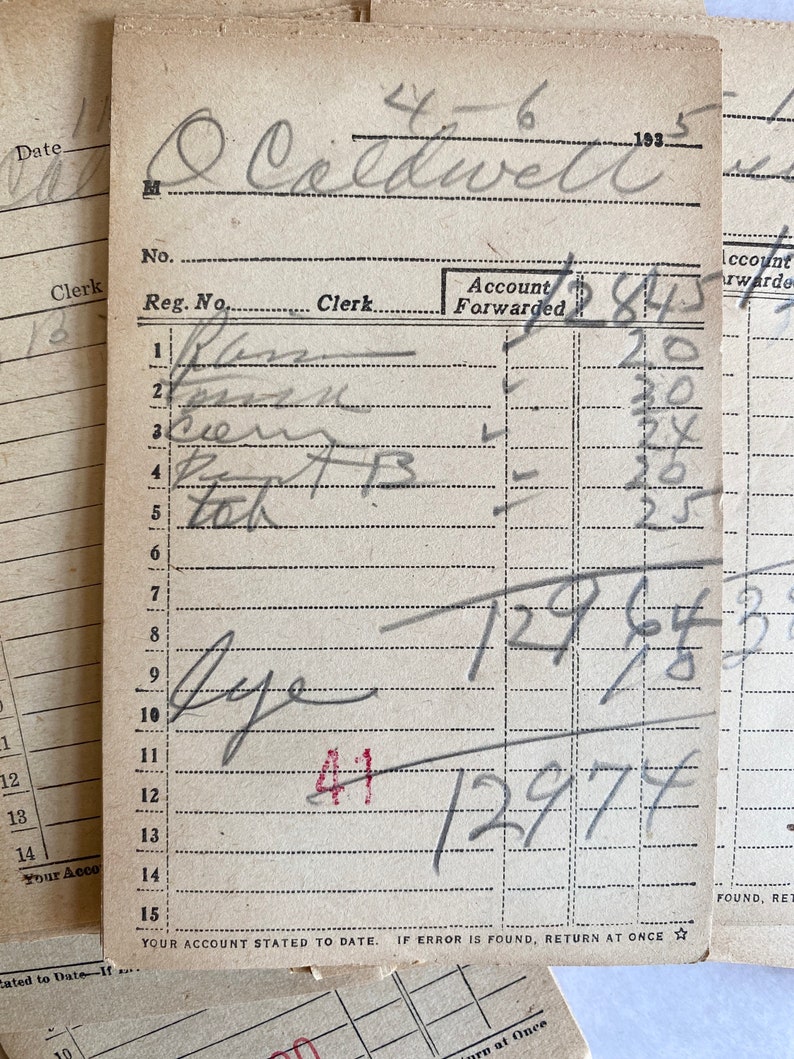 4-6 1935
M O Caldwell
No.
Reg. No. Clerk Account Forwarded 128 45
1 20
2 20
3 Corn 24
4 B 20
5 tob 25
6
7
8 129 64
9 10
10 Dye
11
41
12 129 74
13
14
15
YOUR ACCOUNT STATED TO DATE. IF ERROR IS FOUND, RETURN AT ONCE ☆
Date 11
Clerk
B
12
13
14
Your Acco
tated to Date—If
10
turn at Once
Account
rwarded
FOUND, RET